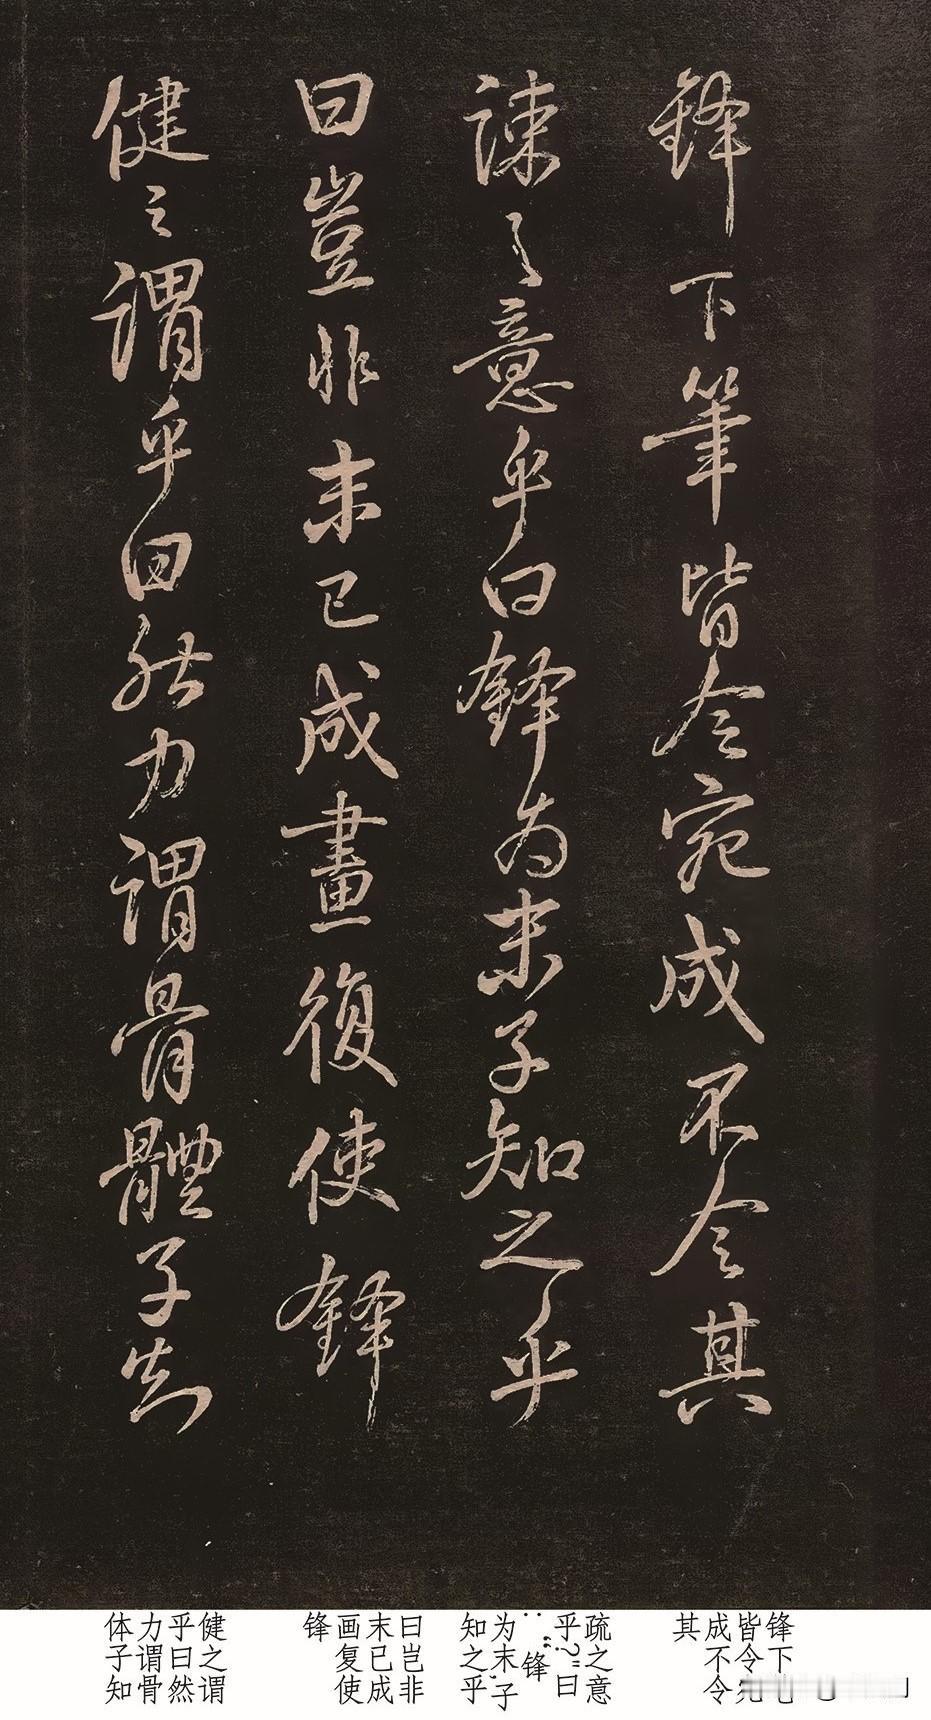 鋒下筆皆令宛成不令其
疎之意乎曰鋒為末子知之乎
曰豈非末已成畫復使鋒
健之謂乎曰然力謂骨體子知
锋下
皆令
成不令
其
疏之意
乎？”曰
：“锋
为末，子
知之乎
曰岂非
末已成
画复使
锋
健之谓
乎曰然
力谓骨
体子知